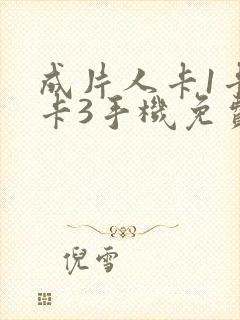 成片人卡1卡
卡3手機免費
倪雪